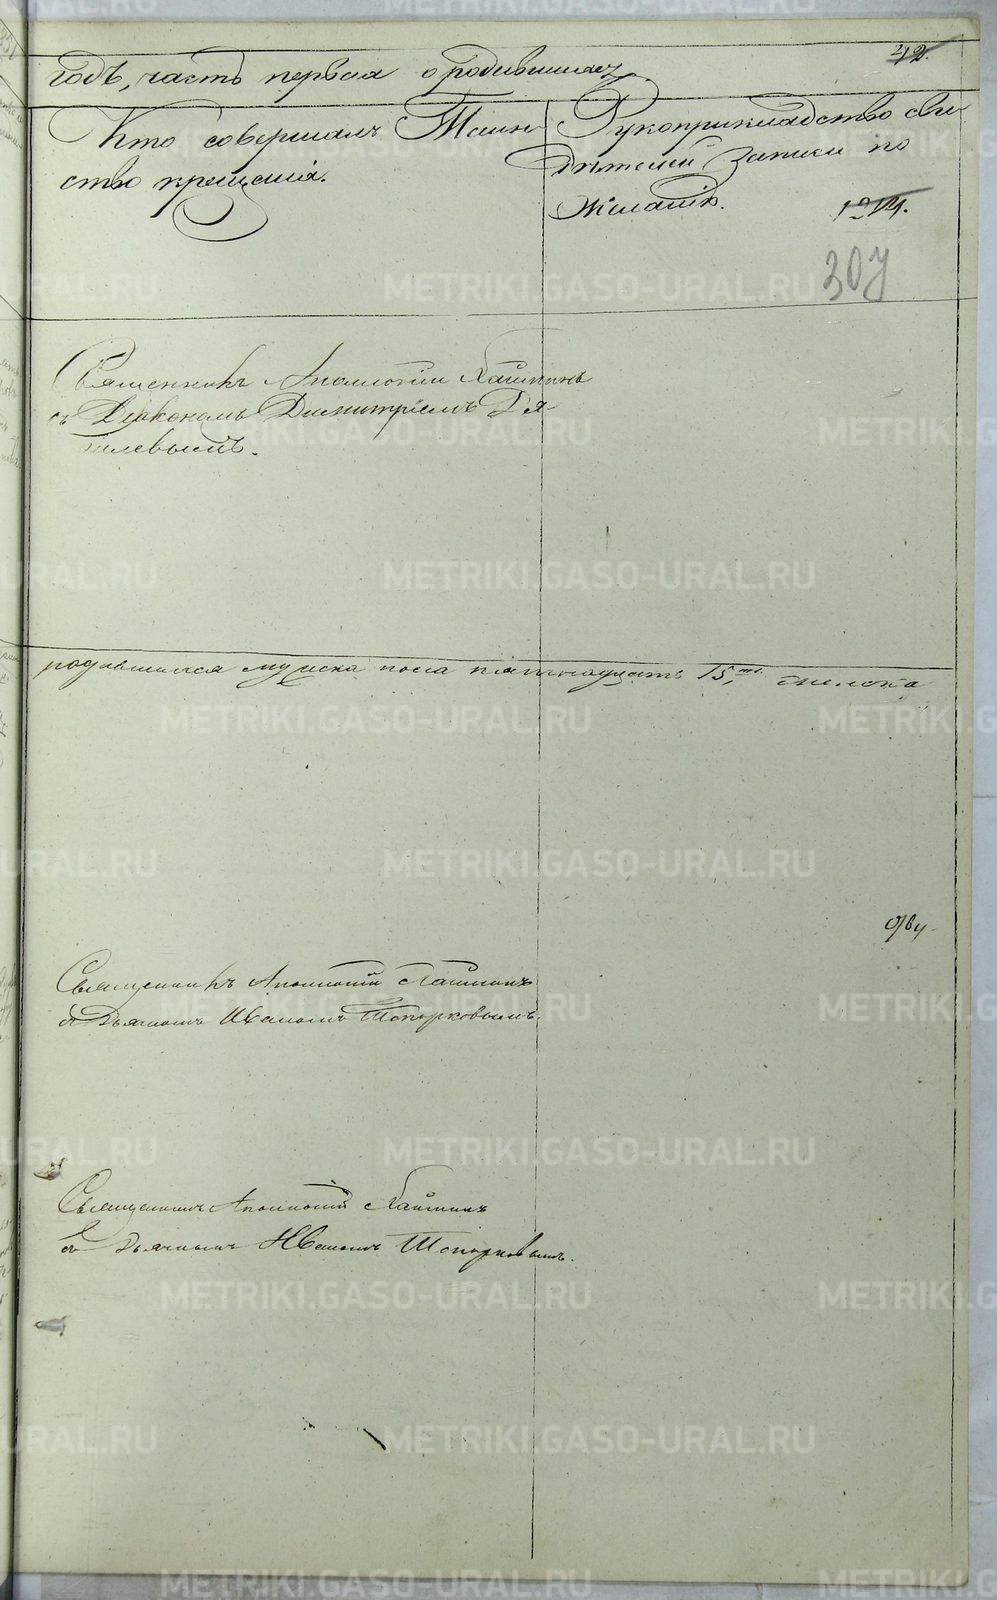 42.
годъ, часть первая о родившихся
Кто совершалъ Таин-
ство крещенія.
Рукоприкладство сви-
дѣтелей записи по
желанію.
307
Священникъ Аполлоній Хайминъ
съ Діакономъ Димитріемъ Дя-
тлевымъ.
родившихся мужска пола пятнадцать 15ть человека
Священникъ Аполлоній Хайминъ
съ Дьячкомъ Иваномъ Топорковымъ.
Священникъ Аполлоній Хайминъ
съ Дьячкомъ Иваномъ Топорковымъ.
METRIKI.GASO-URAL.RU